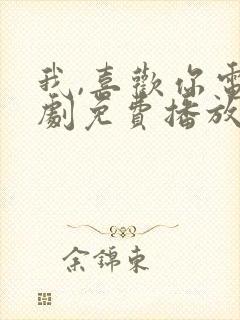 我,喜歡你電
劇免費播放
余錦東